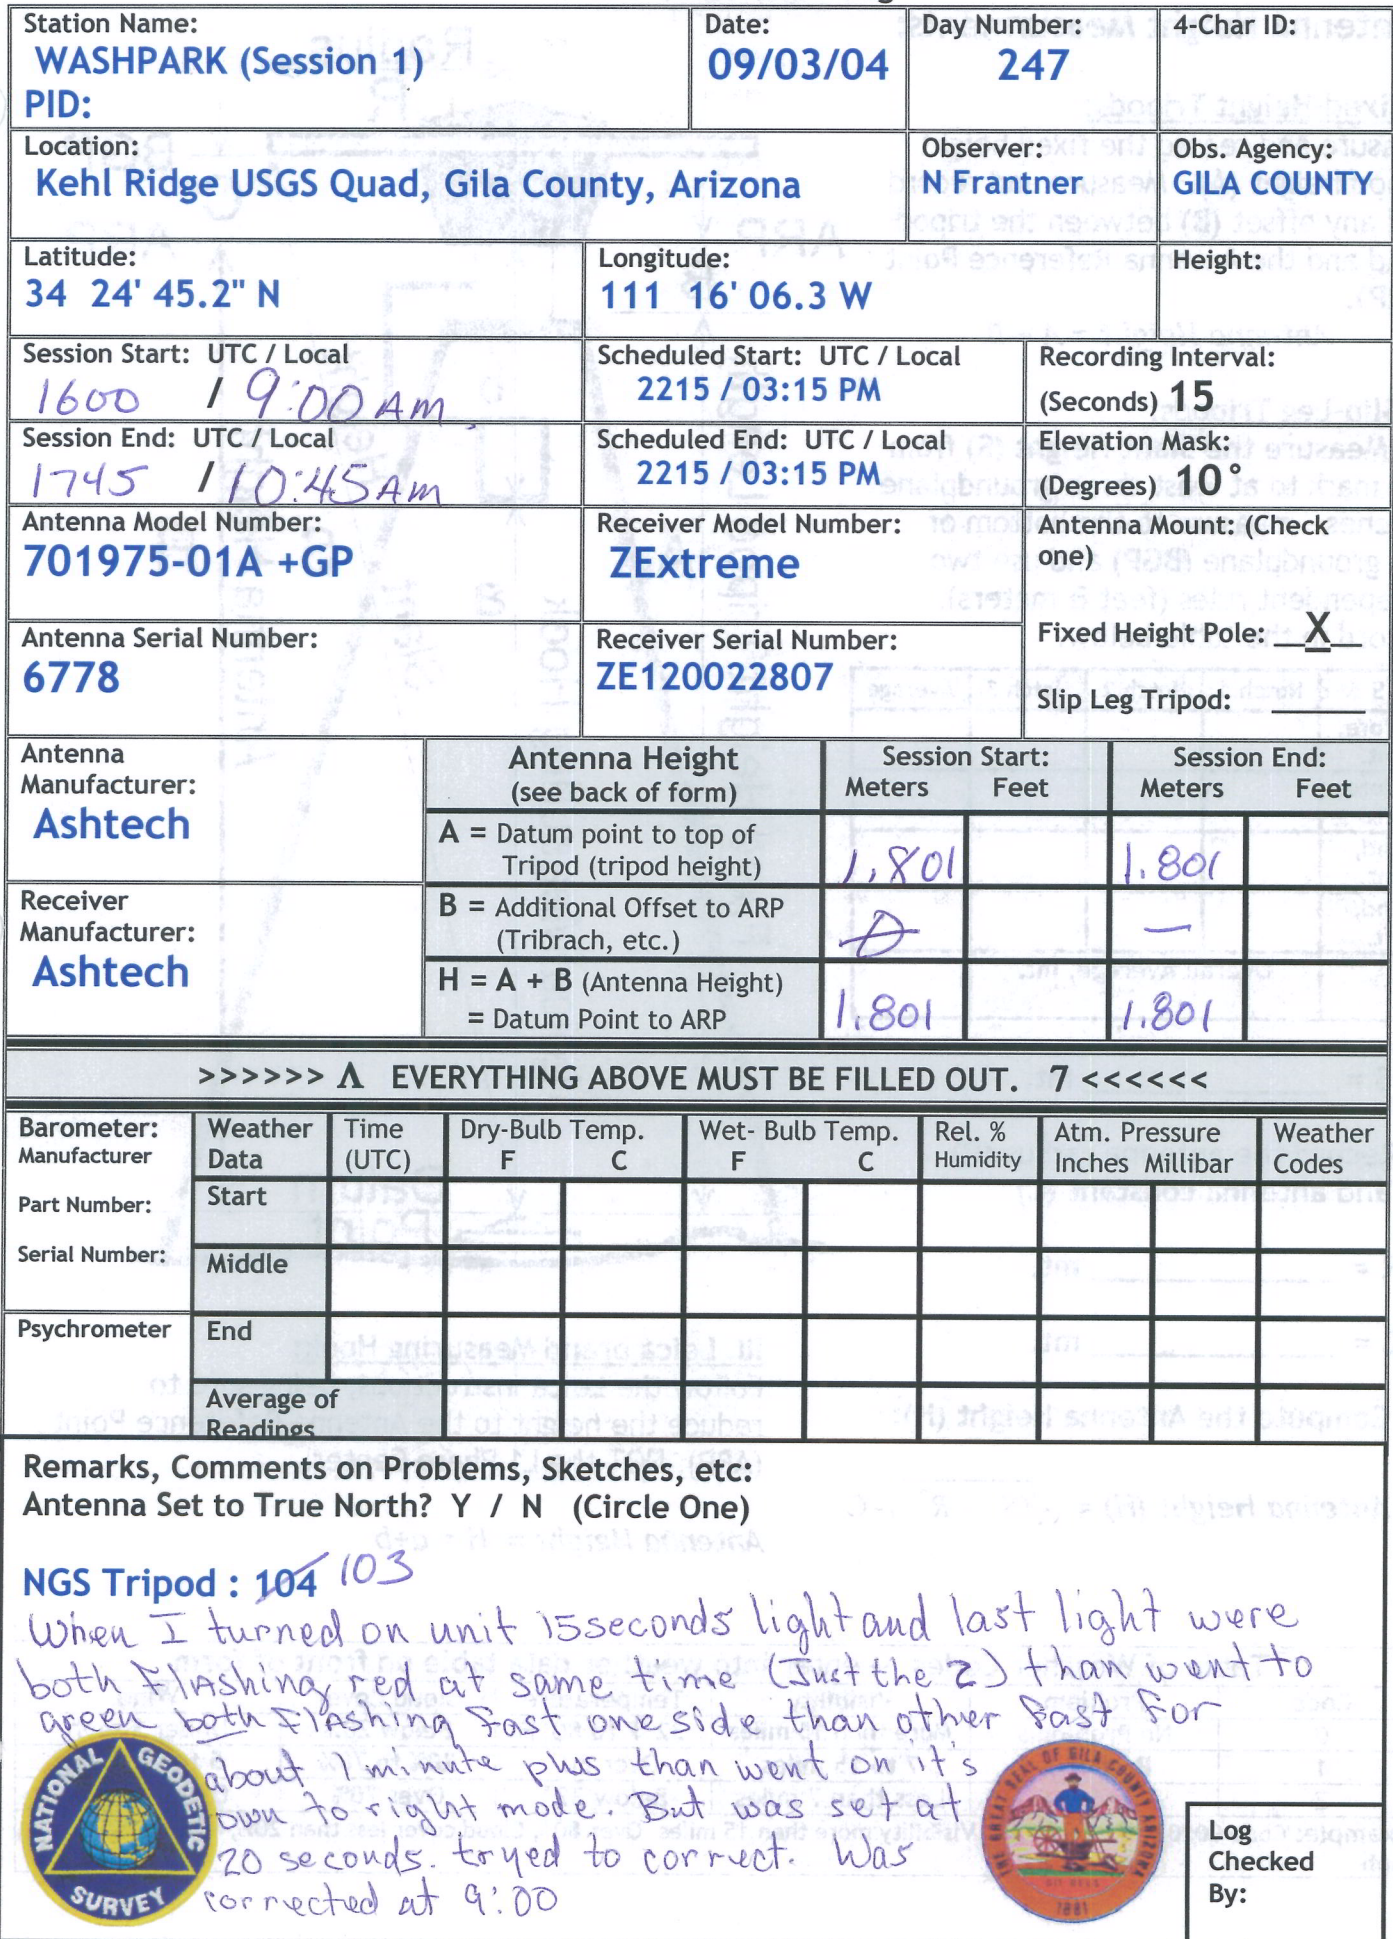 Station Name:
WASHPARK (Session 1)
PID:
Date:
09/03/04
Day Number:
247
4-Char ID:
Location:
Kehl Ridge USGS Quad, Gila County, Arizona
Observer:
N Frantner
Obs. Agency:
GILA COUNTY
Latitude:
34 24' 45.2" N
Longitude:
111 16' 06.3 W
Height:
Session Start: UTC / Local
1600 / 9:00 AM
Scheduled Start: UTC / Local
2215 / 03:15 PM
Recording Interval:
(Seconds) 15
Session End: UTC / Local
1745 / 10:45 AM
Scheduled End: UTC / Local
2215 / 03:15 PM
Elevation Mask:
(Degrees) 10°
Antenna Model Number:
701975-01A +GP
Receiver Model Number:
ZExtreme
Antenna Mount: (Check
one)
Fixed Height Pole: X
Slip Leg Tripod:
Antenna Serial Number:
6778
Receiver Serial Number:
ZE120022807
Antenna
Manufacturer:
Ashtech
Antenna Height
(see back of form)
Session Start:
Meters Feet
Session End:
Meters Feet
A = Datum point to top of
Tripod (tripod height)
1.801 1.801
Receiver
Manufacturer:
Ashtech
B = Additional Offset to ARP
(Tribrach, etc.)
—
H = A + B (Antenna Height)
= Datum Point to ARP
1.801 1.801
>>>>>> Λ EVERYTHING ABOVE MUST BE FILLED OUT. 7 <<<<<<
Barometer:
Manufacturer
Part Number:
Serial Number:
Psychrometer
Weather
Data
Time
(UTC)
Dry-Bulb Temp.
F C
Wet- Bulb Temp.
F C
Rel. %
Humidity
Atm. Pressure
Inches Millibar
Weather
Codes
Start
Middle
End
Average of
Readings
Remarks, Comments on Problems, Sketches, etc:
Antenna Set to True North? Y / N (Circle One)
NGS Tripod : 104 103
When I turned on unit 15seconds light and last light were
both Flashing red at same time (Just the 2) than went to
green both Flashing fast one side than other fast for
about 1 minute plus than went on it's
own to right mode. But was set at
20 seconds. tryed to correct. Was
corrected at 9:00
NATIONAL GEODETIC SURVEY
THE GREAT SEAL OF GILA COUNTY ARIZONA
1881
Log
Checked
By: